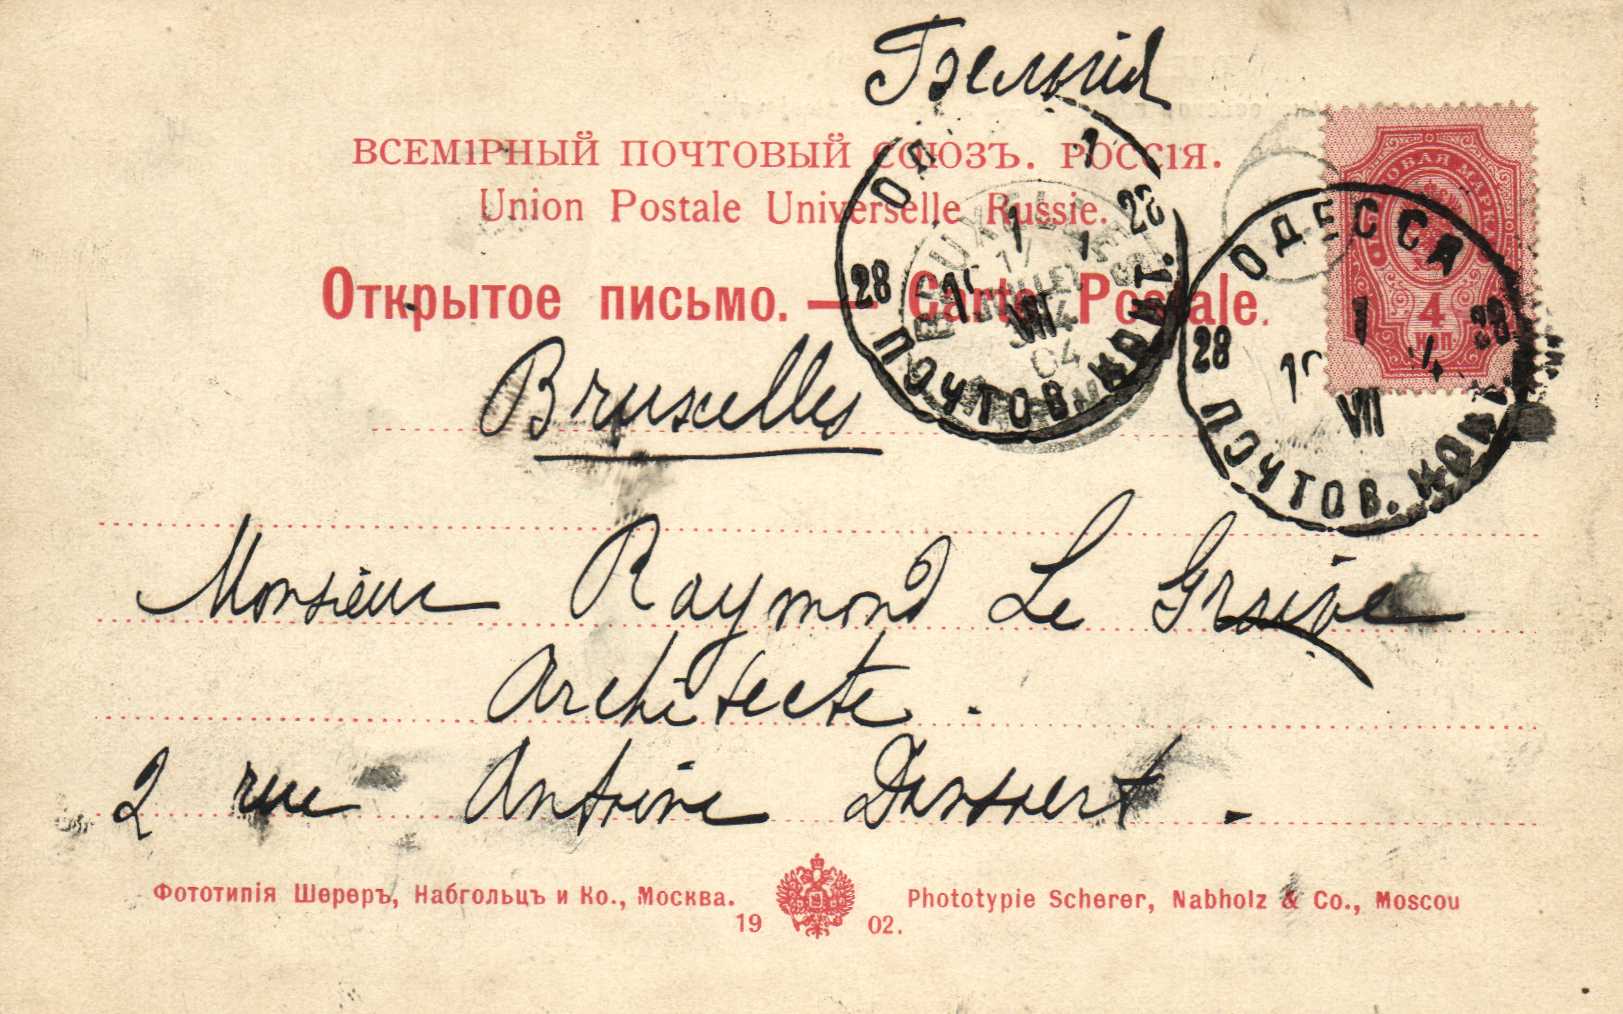 Бельгія
ВСЕМІРНЫЙ ПОЧТОВЫЙ СОЮЗЪ. РОССІЯ.
Union Postale Universelle Russie.
Открытое письмо. — Carte Postale.
ПОЧТОВАЯ МАРКА
4
КОП.
ОДЕССА
28 1 28
VII
ПОЧТОВ.
ОД 1
28 28
VII
ПОЧТОВ.
BRUXELLES
04
Bruxelles
Monsieur Raymond Le Graive
Architecte.
2 rue Antoine Dansaert.
Фототипія Шереръ, Набгольцъ и Ко., Москва.
1902.
Phototypie Scherer, Nabholz & Co., Moscou